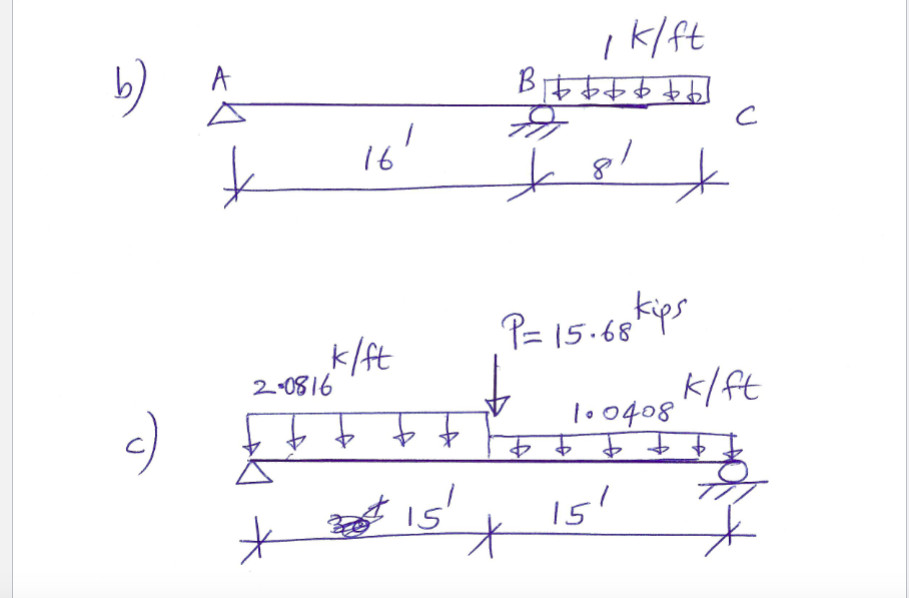 b)
A
B
1 k/ft
C
16'
8'
c)
2.0816 k/ft
P= 15.68 kips
1.0408 k/ft
15'
15'